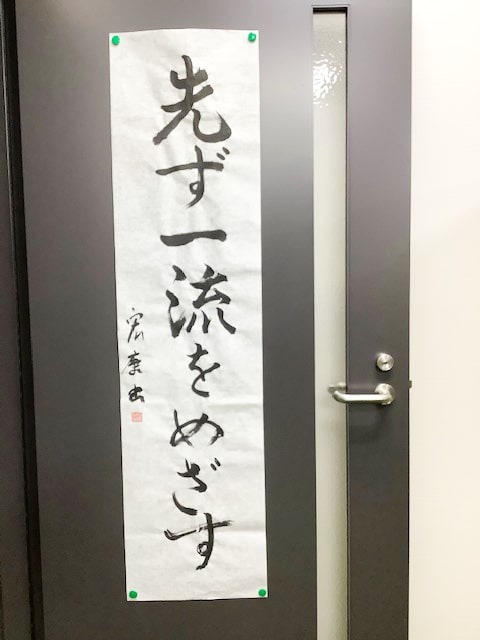 先ず一流をめざす
宏康書